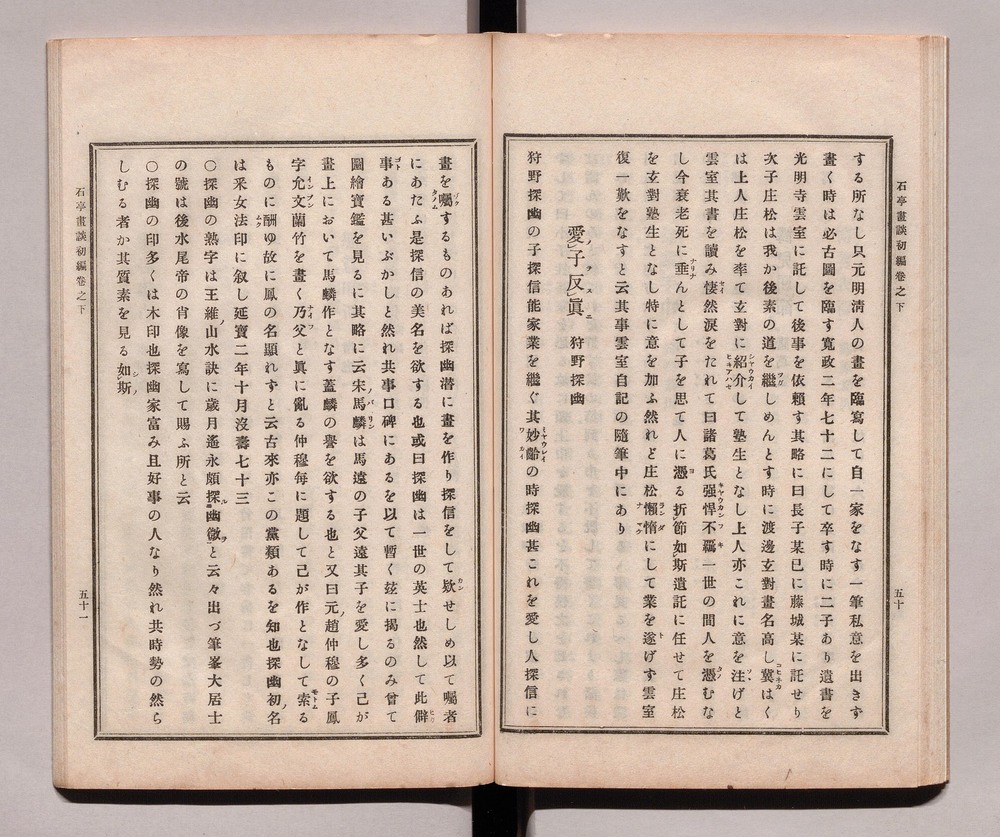 石亭畫談初編卷之下
五十
する所なし只元明淸人の畫を臨寫して自一家をなす一筆私意を出さず
畫く時は必古圖を臨す寬政二年七十二にして卒す時に二子あり遺書を
光明寺雲室に託して後事を依賴す其略に曰長子某已に藤城某に託せり
次子庄松は我か後素の道を繼しめんとす時に渡邊玄對畫名高し冀はく
は上人庄松を率て玄對に紹介して塾生となし上人亦これに意を注げと
雲室其書を讀み悽然淚をたれて曰諸葛氏强悍不羈一世の間人を憑むな
し今衰老死に垂んとして子を思て人に憑る折節如斯遺託に任せて庄松
を玄對塾生となし特に意を加ふ然れど庄松懶惰にして業を遂げす雲室
復一歎をなすと云其事雲室自記の隨筆中にあり
愛子反眞 狩野探幽
狩野探幽の子探信能家業を繼ぐ其妙齡の時探幽甚これを愛し人探信に
畫を囑するものあれば探幽潜に畫を作り探信をして欵せしめ以て囑者
にあたふ是探信の美名を欲する也或曰探幽は一世の英士也然して此僻
事ある甚いぶかしと然れ共事口碑にあるを以て暫く玆に揭るのみ曾て
圖繪寶鑑を見るに其略に云宋馬麟は馬遠の子父遠其子を愛し多く己が
畫上において馬麟作となす蓋麟の譽を欲する也と又曰元趙仲穆の子鳳
字允文蘭竹を畫く乃父と眞に亂る仲穆每に題して己が作となして索る
ものに酬ゆ故に鳳の名顯れずと云古來亦この黨類あるを知也探幽初名
は釆女法印に叙し延寶二年十月沒壽七十三
○探幽の熟字は王維山水訣に歲月遙永頗探幽微と云々出づ筆峯大居士
の號は後水尾帝の肖像を寫して賜ふ所と云
○探幽の印多くは木印也探幽家富み且好事の人なり然れ共時勢の然ら
しむる者か其質素を見る如斯
石亭畫談初編卷之下
五十一